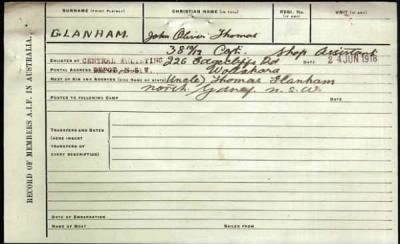 SURNAME (PRINT PLAINLY) CHRISTIAN NAME (IN FULL) REGL. No. (IN ORIG.) UNIT
GLANHAM. John Oliver Thomas
38 9/12 Cpt. Shop Assistant
ENLISTED AT CENTRAL RECRUITING DEPOT, N.S.W. DATE 24 JUN 1918
POSTAL ADDRESS 226 Edgecliffe Rd
Woollahra
NEXT OF KIN AND ADDRESS (IN FULL) (Uncle) Thomas Glanham
North Sydney N.S.W.
POSTED TO FOLLOWING CAMP
TRANSFERS AND DATES
(HERE INSERT
TRANSFERS OF
EVERY DESCRIPTION)
DATE OF EMBARKATION
NAME OF BOAT SAILED FROM
RECORD OF MEMBERS A.I.F. IN AUSTRALIA.